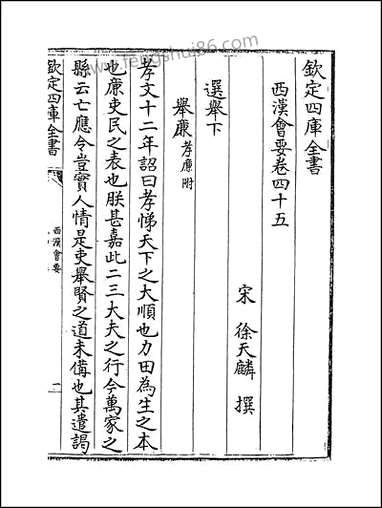 欽定四庫全書
西漢會要卷四十五
宋 徐天麟 撰
選舉下
舉廉孝廉附
孝文十二年詔曰孝悌天下之大順也力田為生之本
也廉吏民之表也朕甚嘉此二三大夫之行今萬家之
縣云亡應令豈實人情是吏舉賢之道未備也其遣謁
欽定四庫全書
西漢會要
一
www.fengshui86.com